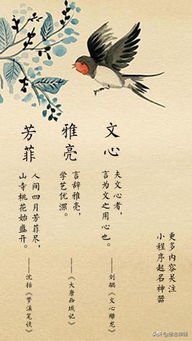 更多内容关注
小程序起名神器
文心
夫文心者，
言为文之用心也。
——刘勰《文心雕龙》
雅亮
言辞雅亮，
学艺优深。
——《大唐西域记》
芳菲
人间四月芳菲尽，
山寺桃花始盛开。
——沈括《梦溪笔谈》